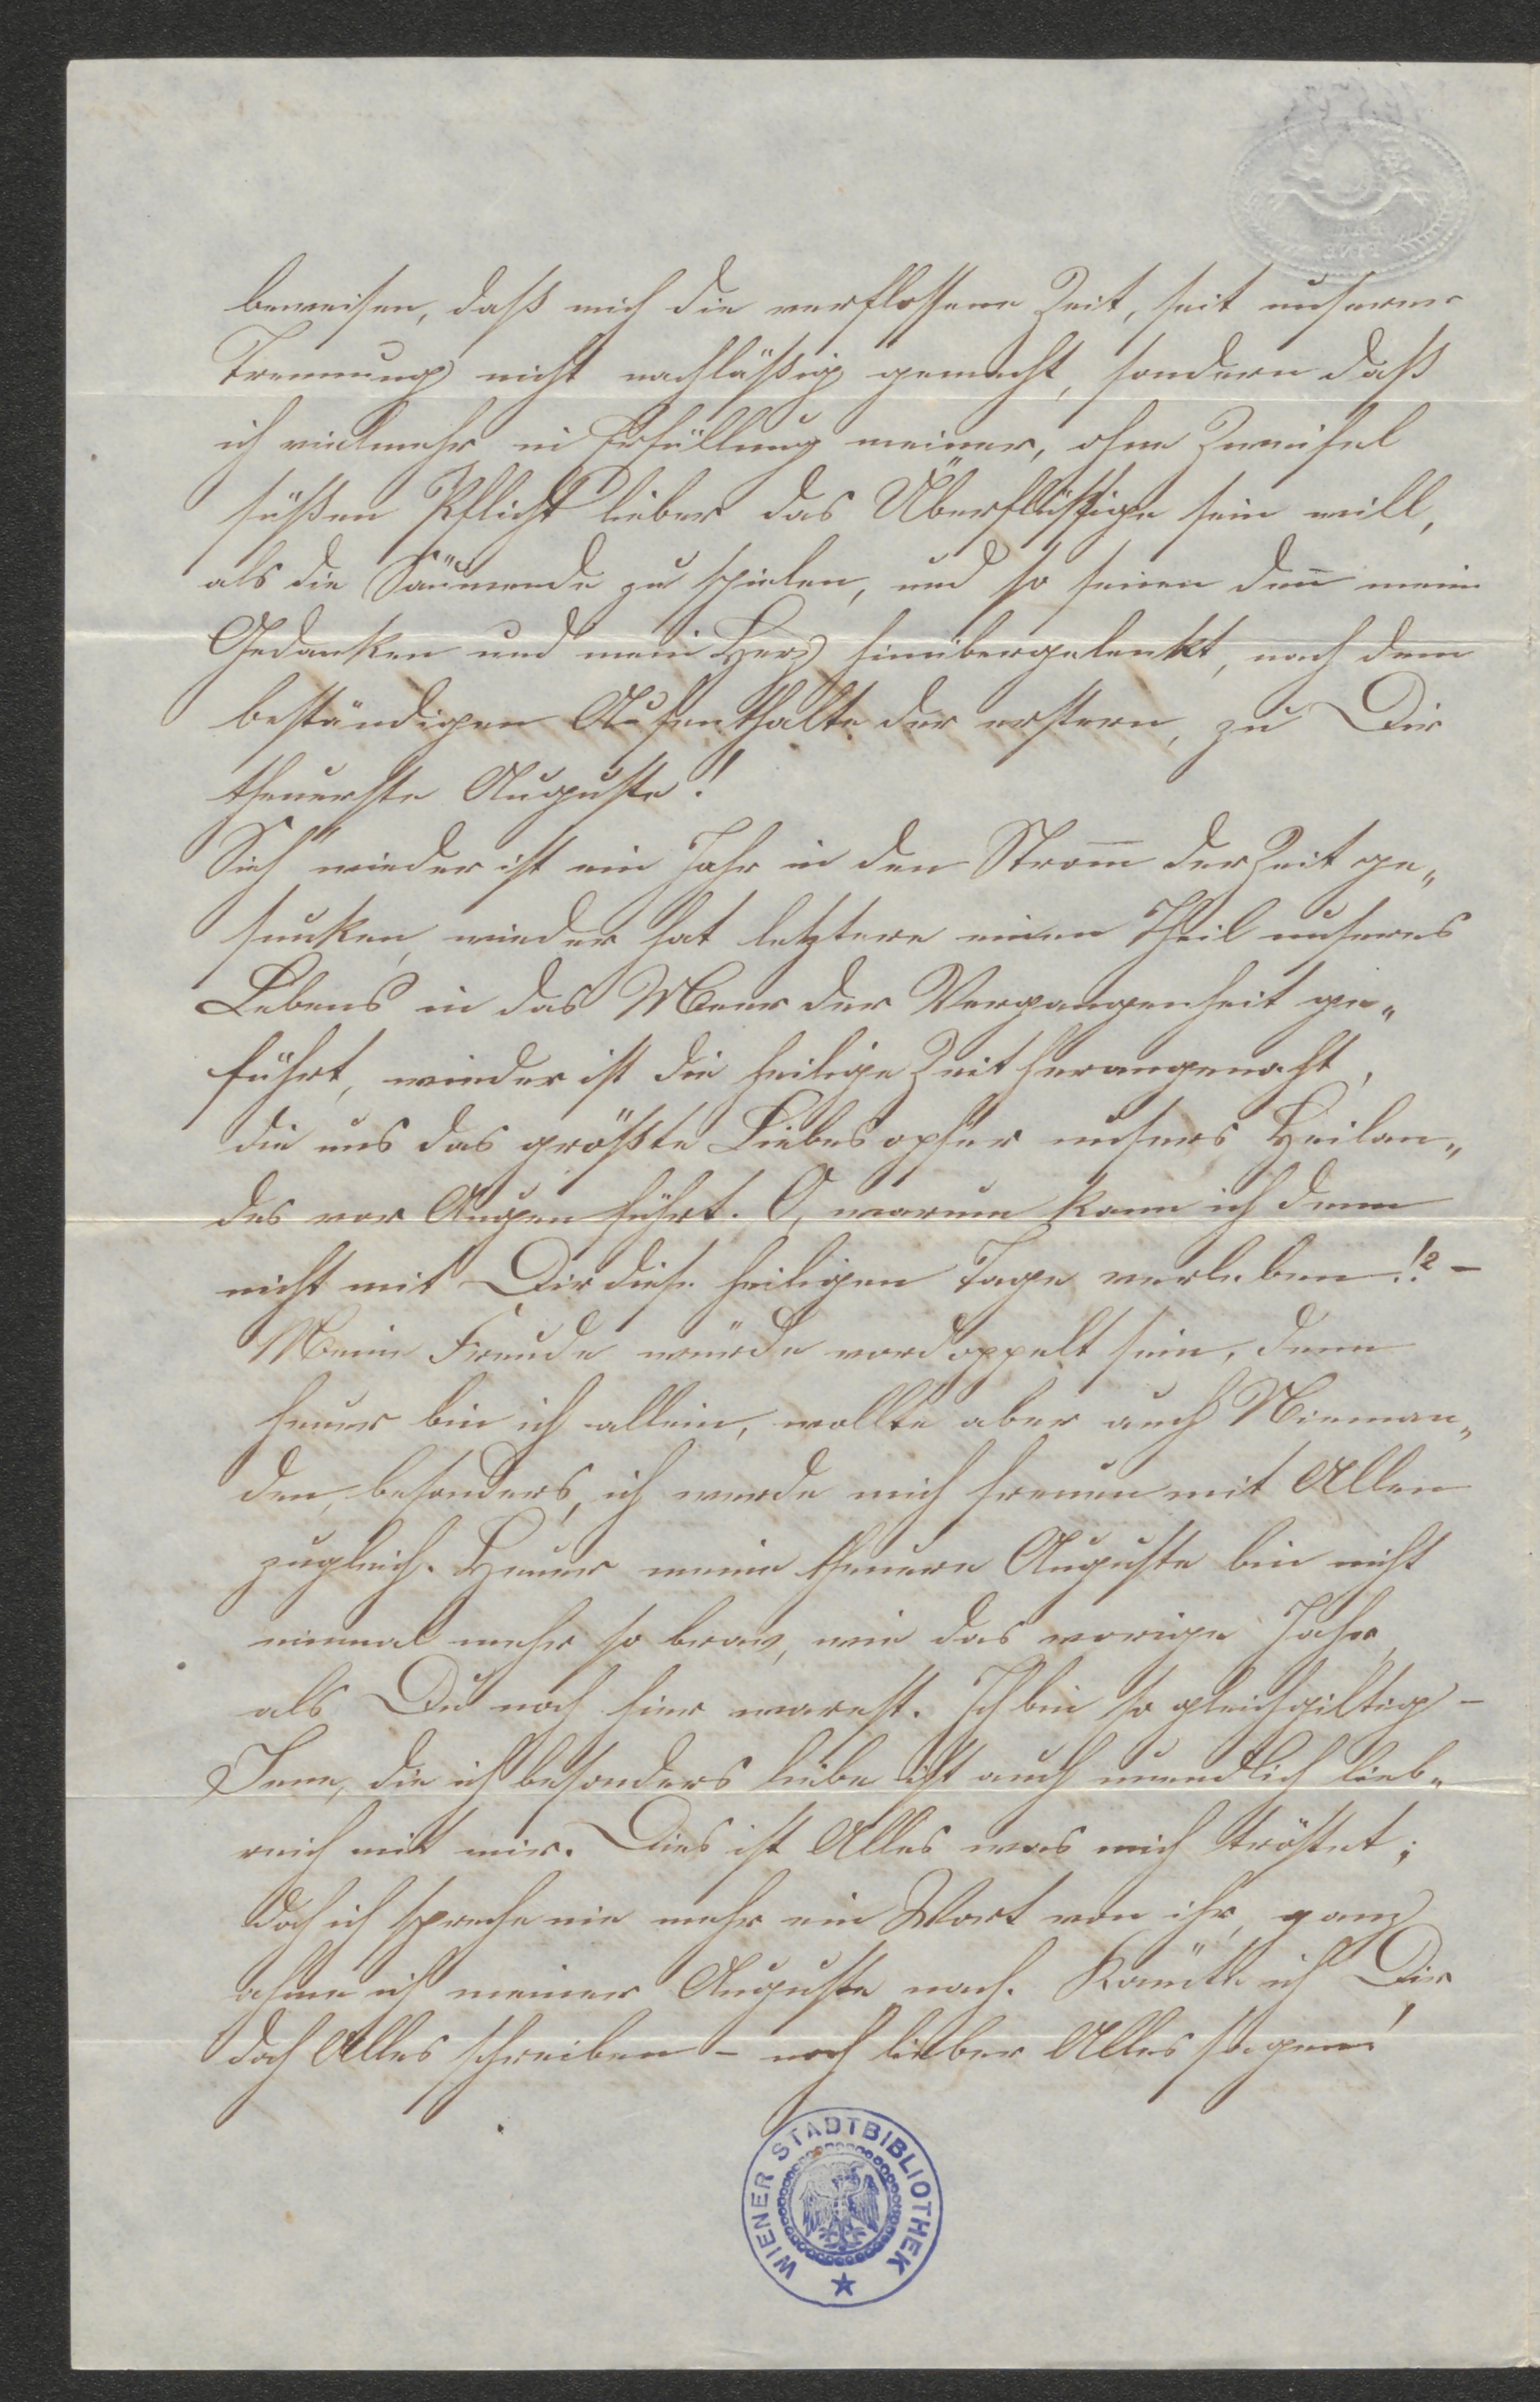 beweisen, daß mich die verflossene Zeit, seit unserer
Trennung nicht nachläßig gemacht, sondern daß
ich vielmehr in Erfüllung meiner, ohne Zweifel
süßen Pflicht lieber das Überflüssige sein will,
als die Säumende zu spielen, und so seien deñ meine
Gedanken und mein Herz hinübergelenkt, nach dem
beständigen Aufenthalte der erstern, zu Dir
theuerste Auguste!
Sieh wieder ist ein Jahr in den Strom̅ der Zeit ge„
sunken, wieder hat letztere einen Theil unseres
Lebens in das Meer der Vergangenheit ge„
führt, wieder ist die heilige Zeit herangenaht,
die uns das größte Liebesopfer unsers Heilan„
des vor Augen führt. O, warum kann ich denn
nicht mit Dir diese heiligen Tage verleben!? –
Meine Freude würde verdoppelt sein, denn
heuer bin ich allein, wollte aber auch Nieman„
den, besonders, ich werde mich freuen mit Allen
zugleich. Heuer meine theuere Auguste bin nicht
einmal mehr so brav, wie das vorige Jahr,
als Du noch hier warest. Ich bin so gleichgiltig –
Jene, die ich besonders liebe ist auch unendlich lieb„
reich mit mir. Dies ist Alles was mich tröstet;
doch ich spreche nie mehr ein Wort von ihr, ganz
ahme ich meiner Auguste nach. Könnte ich Dir
doch Alles schreiben – noch lieber Alles sagen!
WIENER STADTBIBLIOTHEK